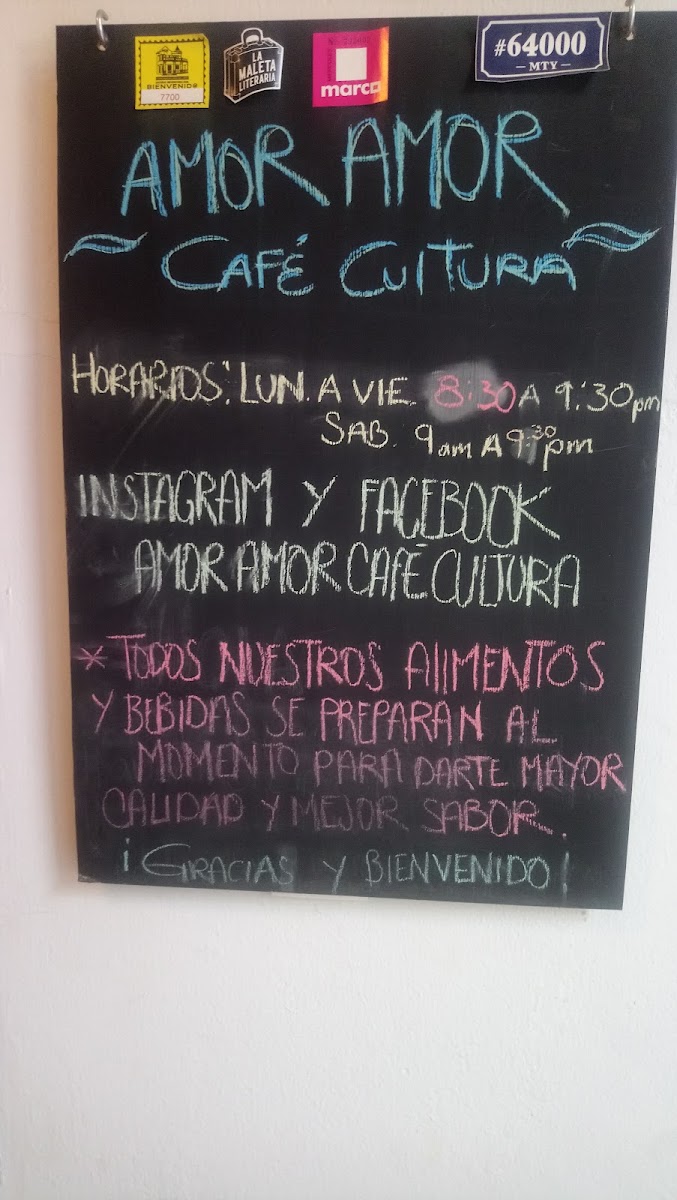 BIENVENID@
7700
LA
MALETA
LITERARIA
marco
#64000
MTY
AMOR AMOR
CAFÉ CULTURA
HORARIOS: LUN. A VIE 8:30 A 9:30 pm
SAB. 9am A 9:30 pm
INSTAGRAM Y FACEBOOK
AMOR AMOR CAFÉ CULTURA
* TODOS NUESTROS ALIMENTOS
Y BEBIDAS SE PREPARAN AL
MOMENTO PARA DARTE MAYOR
CALIDAD Y MEJOR SABOR.
¡GRACIAS Y BIENVENIDO!